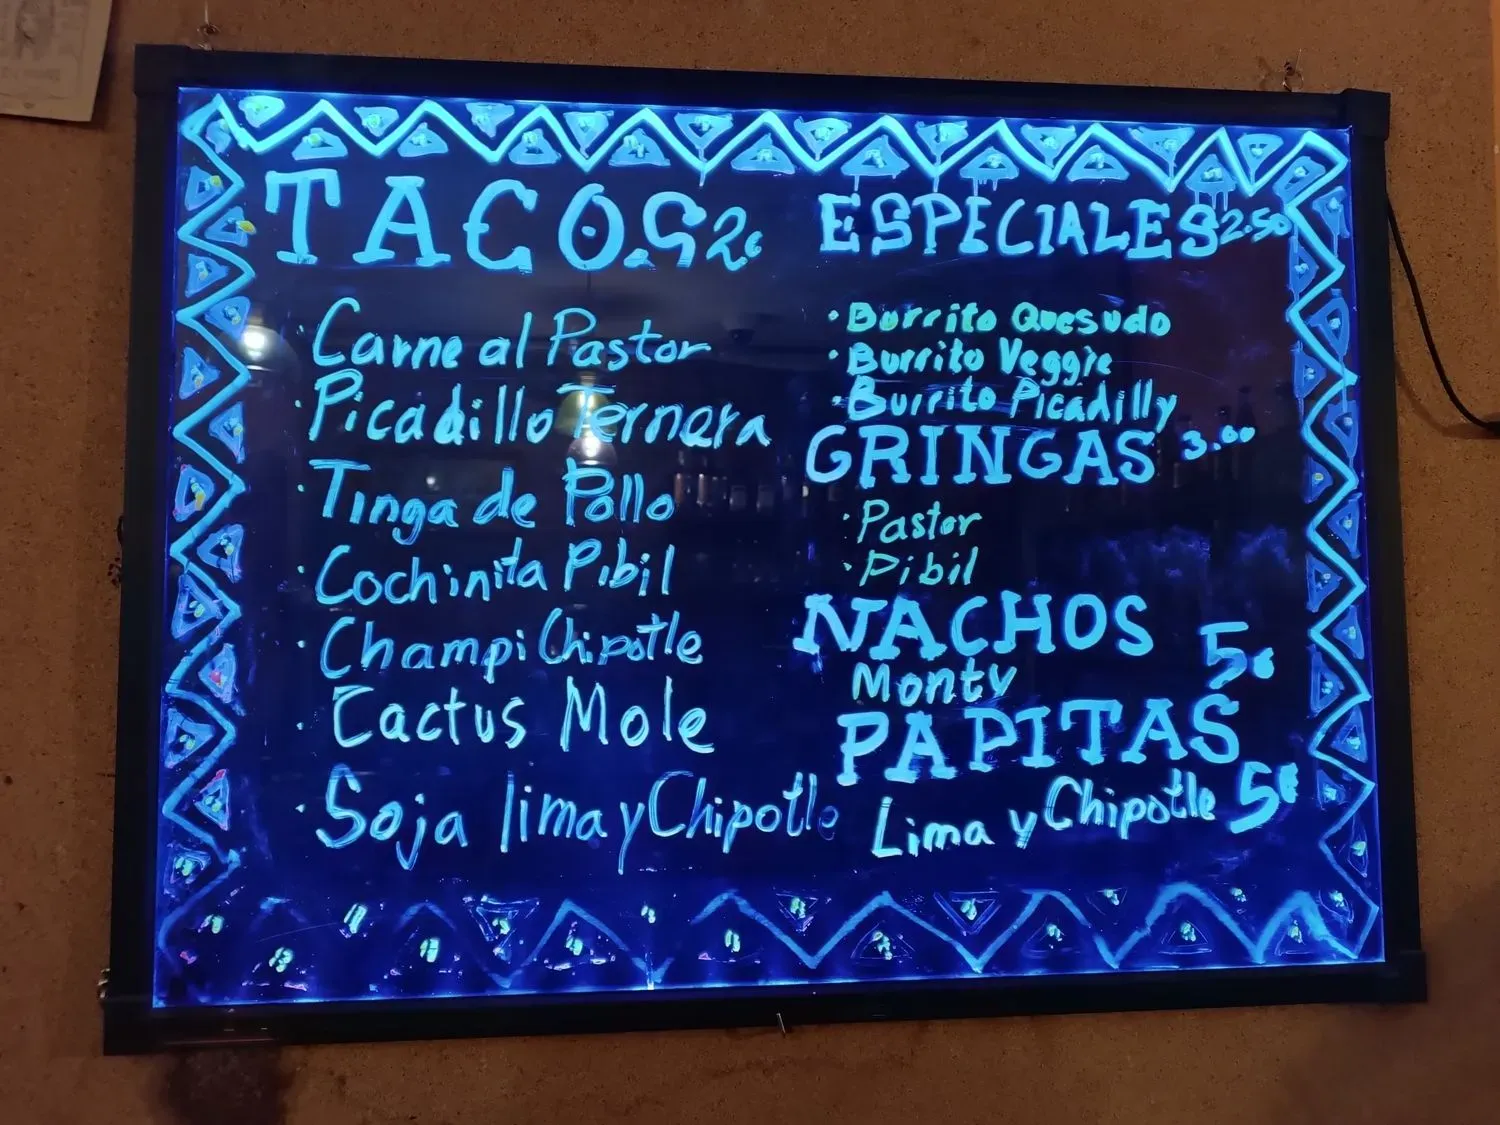 TACOS 2€
· Carne al Pastor
· Picadillo Ternera
· Tinga de Pollo
· Cochinita Pibil
· Champi Chipotle
· Cactus Mole
· Soja lima y Chipotle
ESPECIALES 2.50
· Burrito Quesudo
· Burrito Veggie
· Burrito Picadilly
GRINGAS 3.00
· Pastor
· Pibil
NACHOS 5€
Monty
PAPITAS
Lima y Chipotle 5€